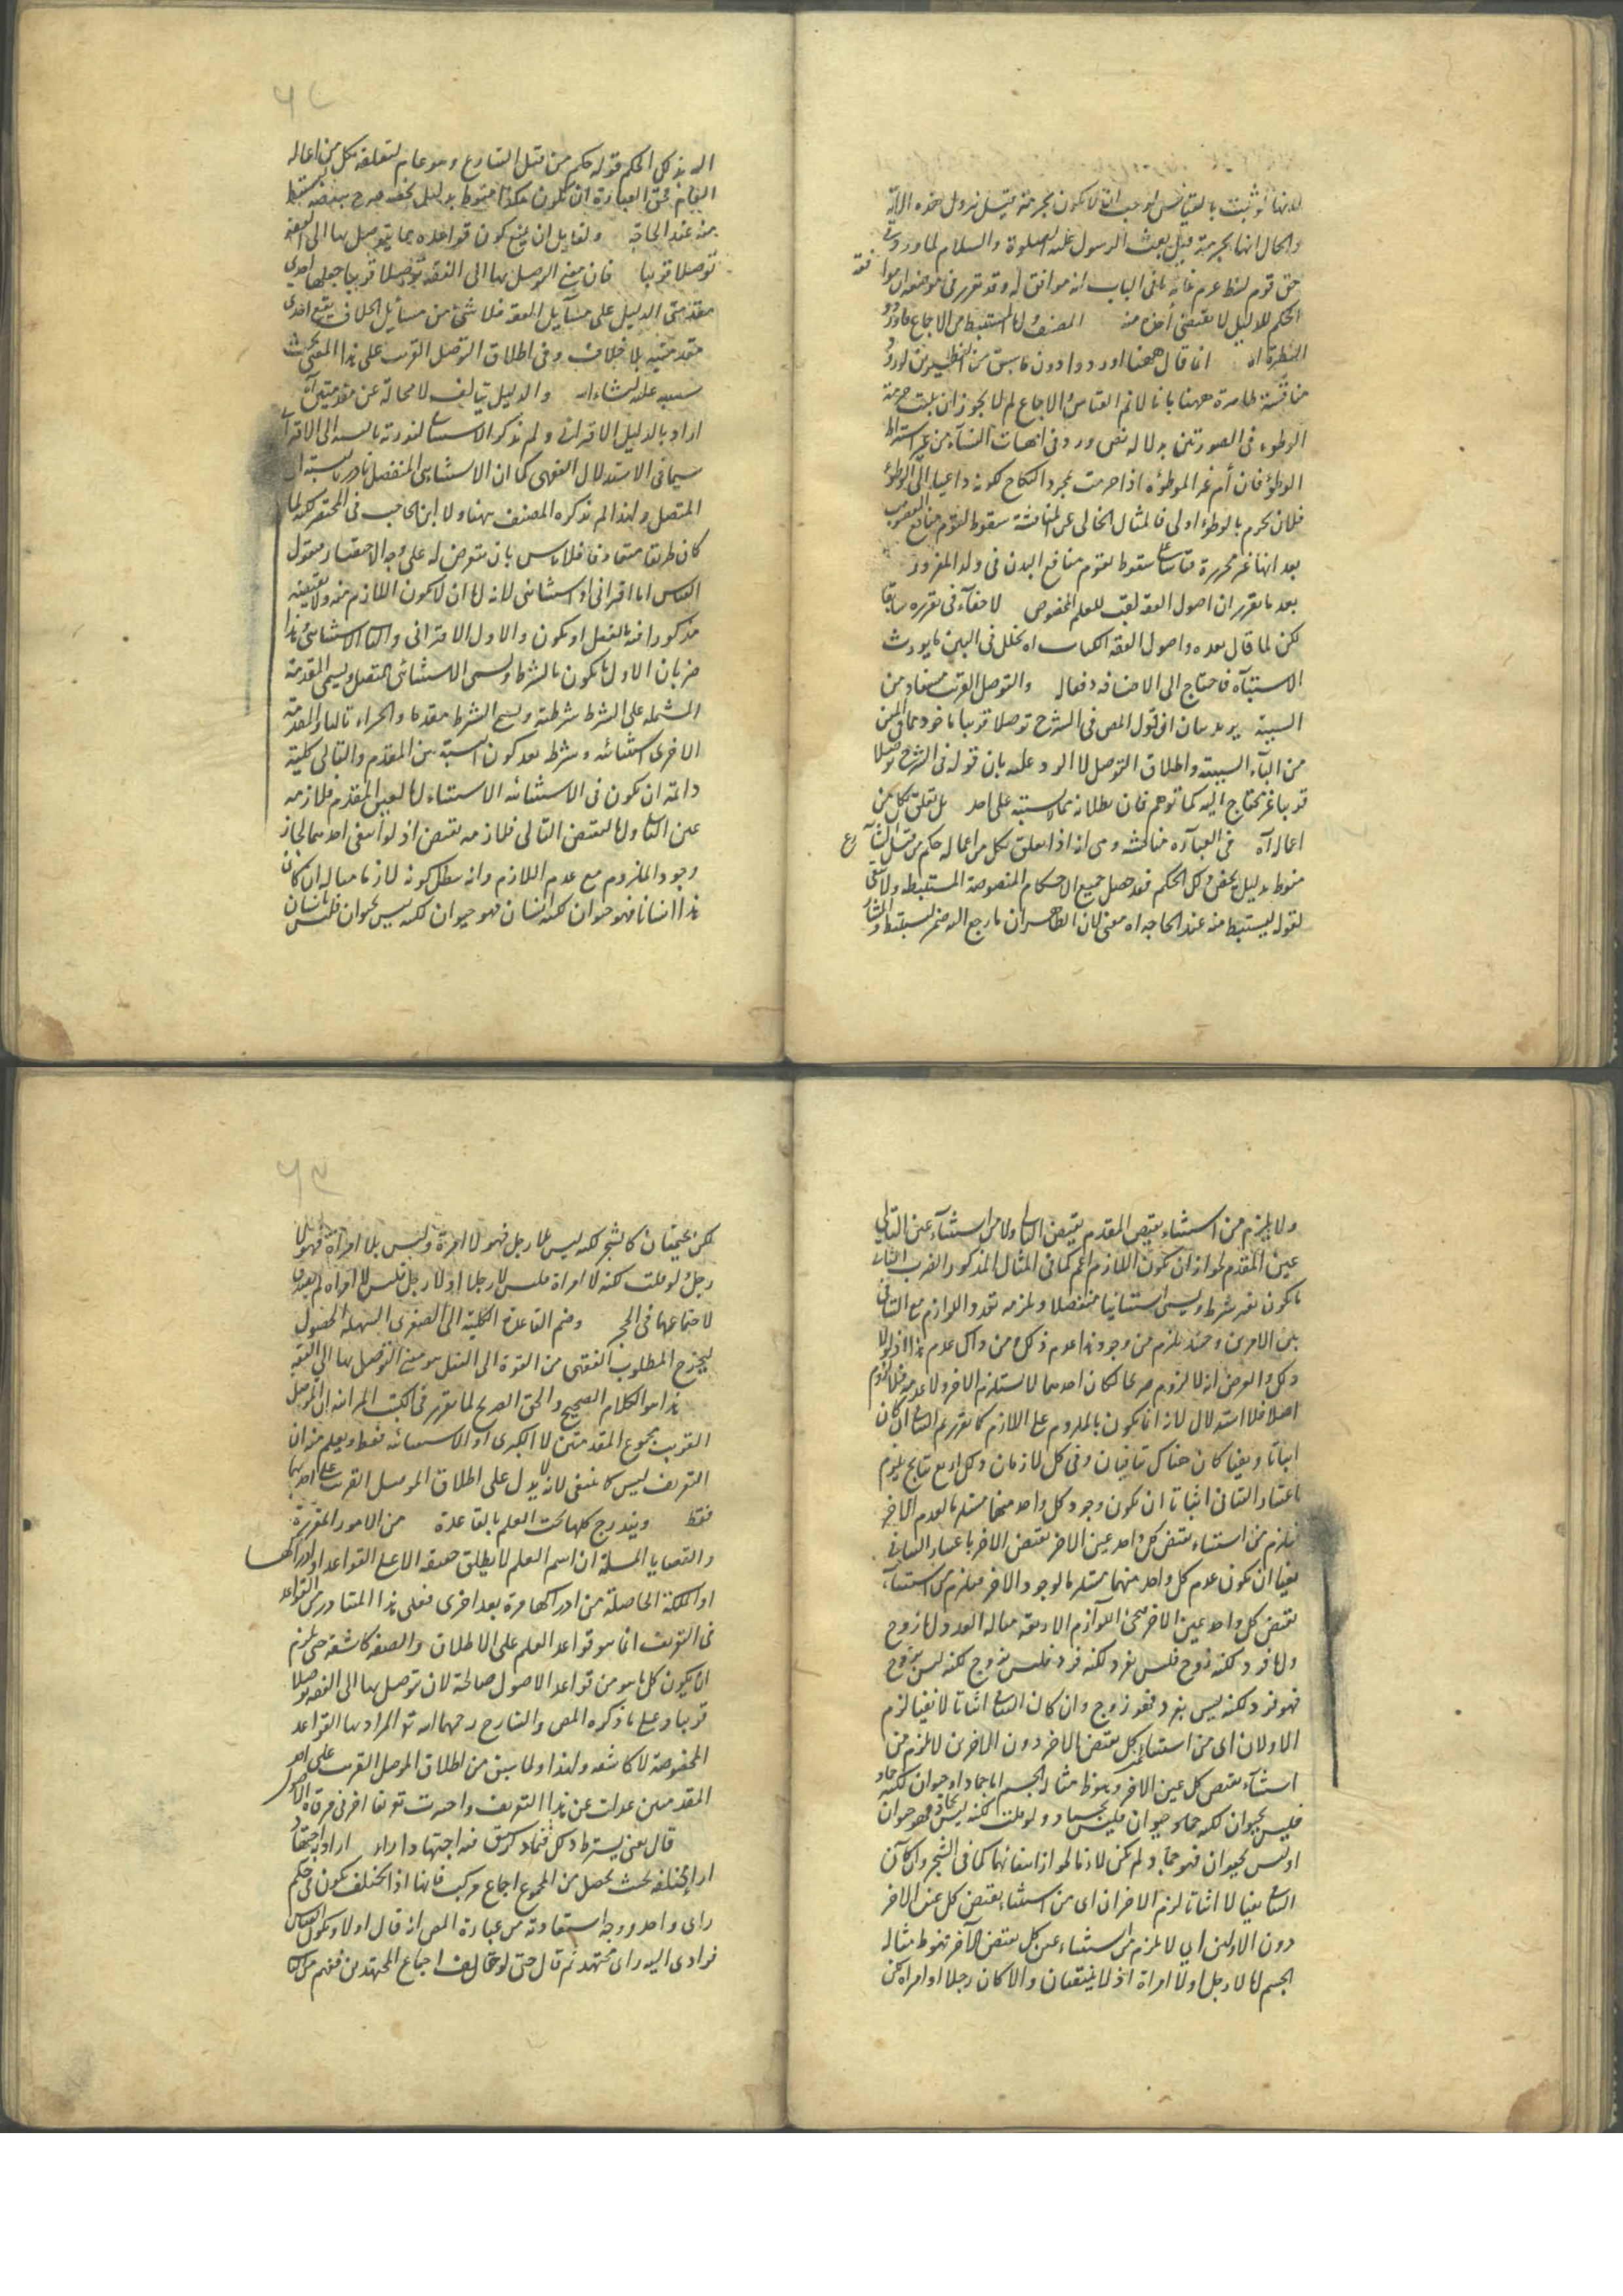 لانها لو ثبت بالقياس لوجب ان لا يكون بحرمته قبل نزول هذه الآية
والحال انها بحرمة قبل بعث الرسول عليه الصلوة والسلام لما ورد في
حق قوم لوط غاية ما في الباب انه موافق له وقد تقرر في موضعه ان موافقة
الحكم للدليل لا يقتضي أخذه منه المصنف اما المستنبط من الاجماع فاورد و
النظيره اه انما قال ههنا اوردوا دون ما سبق من النظيرين لورود
مناقشة ظاهرة ههنا بانا لا نم القياس الاجماع لم لا يجوز ان يثبت حرمة
الوطوء في الصورتين بدلالة نص ورد في امهات النساء من غير اشتراط
الوطؤ فان أم غير الموطؤة اذا حرمت بمجرد النكاح لكونه داعيا الى الوطؤ
فلان يحرم بالوطؤ اولى فالمثال الخالي عن المناقشة سقوط تقوم منافع المغصوب
بعد انها غير محررة قياسا على سقوط تقوم منافع البدن في ولد المغرور
بعد ما تقرر ان اصول الفقه لقب للعلم المخصوص لا خفاء في تقرره سابقا
لكن لما قال بعده واصول الفقه الكتاب اه تخلل في البين ما يورث
الاشتباه فاحتاج الى الاضافة دفعا له والتوصل القريب مستفاد من
السببية يريد بيان ان قول المص في الشرح توصلا قريبا ماخوذ مما في المتن
من الباء السببية واطلاق التوصل لا الرد عليه بان قوله في الشرح توصلا
قريبا غير محتاج اليه كما توهم فان بطلانه مما لا يشتبه على احد بل تعلق بكل من
اعماله اه في العبارة مناقشة وهي انه اذا تعلق بكل من اعماله حكم من قبل الشارع
منوط بدليل يخصه وكل الحكم فقد حصل جميع الاحكام المنصوصة المستنبطة ولا يبقى
لقوله ليستنبط منه عند الحاجة اه معنى لان الظاهر ان ما رجع اليه ضمير ليستنبط والمشار
اليه بذلك الحكم قوله حكم من قبل الشارع وهو عام لتعلقه بكل من اعماله
القائم فحق العبارة ان تكون هكذا منوط بدليل يخصه صرح ببعضه ليستنبط
منه عند الحاجة ولقايل ان يمنع كون قواعده مما يتوصل بها الى الفقه
توصلا قريبا فان معنى التوصل بها الى الفقه توصلا قريبا جعلها احدى
مقدمتي الدليل على مسآيل الفقه فلا شئ من مسآيل الخلاف يقع احدى
مقدمتيه بلا خلاف وفي اطلاق التوصل القريب على هذا المعنى بحث
سننبه عليه ان شاء الله والدليل يتألف لا محالة عن مقدمتين اه
اراد بالدليل الاقتراني ولم يذكر الاستثنائي لندرته بالنسبة الى الاقتراني
سيما في الاستدلال الفقهي كما ان الاستثنائي المنفصل نادر بالنسبة الى
المتصل ولهذا لم يذكره المصنف ههنا ولا ابن الحاجب في المختصر لكنه لما
كان طريقا متعارفا فلا باس بان نتعرض له على وجه الاختصار فنقول
القياس اما اقتراني او استثنائي لانه اما ان لا يكون اللازم منه ولا نقيضه
مذكورا فيه بالفعل او يكون والاول الاقتراني والثاني الاستثنائي وهذا
ضربان الاول ما يكون بالشرط ويسمى الاستثنائي المتصل ويسمى المقدمة
المشتملة على الشرط شرطية ويسمى الشرط مقدما والجزاء تاليا والمقدمة
الاخرى استثنائية وشرطه بعد كون النسبة بين المقدم والتالي كلية
دائمة ان يكون في الاستثنائية الاستثناء اما لعين المقدم فلازمه
عين التالي واما لنقيض التالي فلازمه نقيض اذ لو انتفى احدهما لجاز
وجود الملزوم مع عدم اللازم وانه يبطل كونه لازما مثاله ان كان
هذا انسانا فهو حيوان لكنه انسان فهو حيوان لكنه ليس بحيوان فليس بانسان
ولا يلزم من استثناء نقيض المقدم نقيض التالي ولا من استثناء عين التالي
عين المقدم لجواز ان يكون اللازم اعم كما في المثال المذكور الضرب الثاني
ما يكون بغير شرط ويسمى استثنائيا منفصلا ويلزمه تعدد اللوازم مع التنافي
بين الامرين وحينئذ يلزم من وجود هذا عدم ذلك ومن ذاك عدم هذا اذ لولا
ذلك والفرض انه لا لزوم صريحا لكان احدهما لا يستلزم الاخر ولا عدمه فلا لزوم
اصلا فلا استدلال لانه انما يكون بالملزوم على اللازم كما تقرر ثم التنافي ان كان
اثباتا ونفيا كان هناك تنافيان وفي كل لازمان ولكل اربع نتايج يلزم
باعتبار التنافي اثباتا ان يكون وجود كل واحد منهما مستلزما لعدم الاخر
فيلزم من استثناء عين كل واحد نقيض الاخر باعتبار التنافي
نفيا ان يكون عدم كل واحد منهما مستلزما لوجود الاخر فيلزم من استثناء
نقيض كل واحد عين الاخر فهي اللوازم الاربعة مثاله العدد اما زوج
واما فرد لكنه زوج فليس بفرد لكنه فرد فليس بزوج لكنه ليس بزوج
فهو فرد لكنه ليس بفرد فهو زوج وان كان التنافي اثباتا لا نفيا لزم
الاولان اي من استثناء عين كل نقيض الاخر دون الاخرين لا يلزم من
استثناء نقيض كل عين الاخر وهو ظ مثاله الجسم اما جماد او حيوان لكنه جماد
فليس بحيوان لكنه حيوان فليس بجماد ولو قلت لكنه ليس بجماد فهو حيوان
او ليس بحيوان فهو جماد لم يكن لازما لجواز انتفائهما كما في الشجر وان كان
التنافي نفيا لا اثباتا لزم الاخران اي من استثناء نقيض كل عين الاخر
دون الاولين اي لا يلزم من استثناء عين كل نقيض الاخر وهو ظ مثاله
الجسم اما لا رجل او لا امراة اذ لا ينتفيان والا كان رجلا او امراة لكن
لكن يجتمعان كالشجر لكنه ليس بلا رجل فهو لا امرأة وليس بلا امراة فهو لا
رجل ولو قلت لكنه لا امراة فليس لا رجلا او لا رجل فليس لا امراة لم يصدق
لاجتماعهما في الحجر وضم القاعدة الكلية الى الصغرى السهلة الحصول
ليخرج المطلوب الفقهي من القوة الى الفعل هو معنى التوصل بها الى الفقه
هذا هو الكلام الصحيح والحق الصريح لما تقرر في الكتب الميزانية ان الموصل
القريب مجموع المقدمتين لا الكبرى او الاستثنائية فقط ويعلم منه ان
التعريف ليس كما ينبغي لانه لا يدل على اطلاق الموصل القريب على احدهما
فقط ويندرج كلها تحت العلم بالقاعدة من الامور المقررة
والقضايا المسلمة ان اسم العلم لا يطلق حقيقة الا على القواعد او ادراكها
او الملكة الحاصلة من ادراكها مرة بعد اخرى فعلى هذا المتبادر من القواعد
في التعريف انما هو قواعد العلم على الاطلاق والصفة كاشفة حتى يلزم
ان يكون كل ما هو من قواعد الاصول صالحة لان يتوصل بها الى الفقه توصلا
قريبا وعلى ما ذكره المص والشارح رحمهما الله تع المراد بها القواعد
المخصوصة لا كاشفة ولهذا ولما سبق من اطلاق الموصل القريب على احد
المقدمتين عدلت عن هذا التعريف واخترت تعريفا اخر في مرقاة الاصول
قال يعني يشترط ذلك فيما لم يسبق فيه اجتهاد اراء اراد باجتهاد
اراء مختلفة بحيث يحصل من المجموع اجماع مركب فانها اذا لم تختلف يكون في حكم
راى واحد ووجه استفادته من عبارة المص انه قال اولا ويكون القياس
قد ادى اليه راى مجتهد ثم قال حتى لو خالف اجماع المجتهدين ففهم من هذا